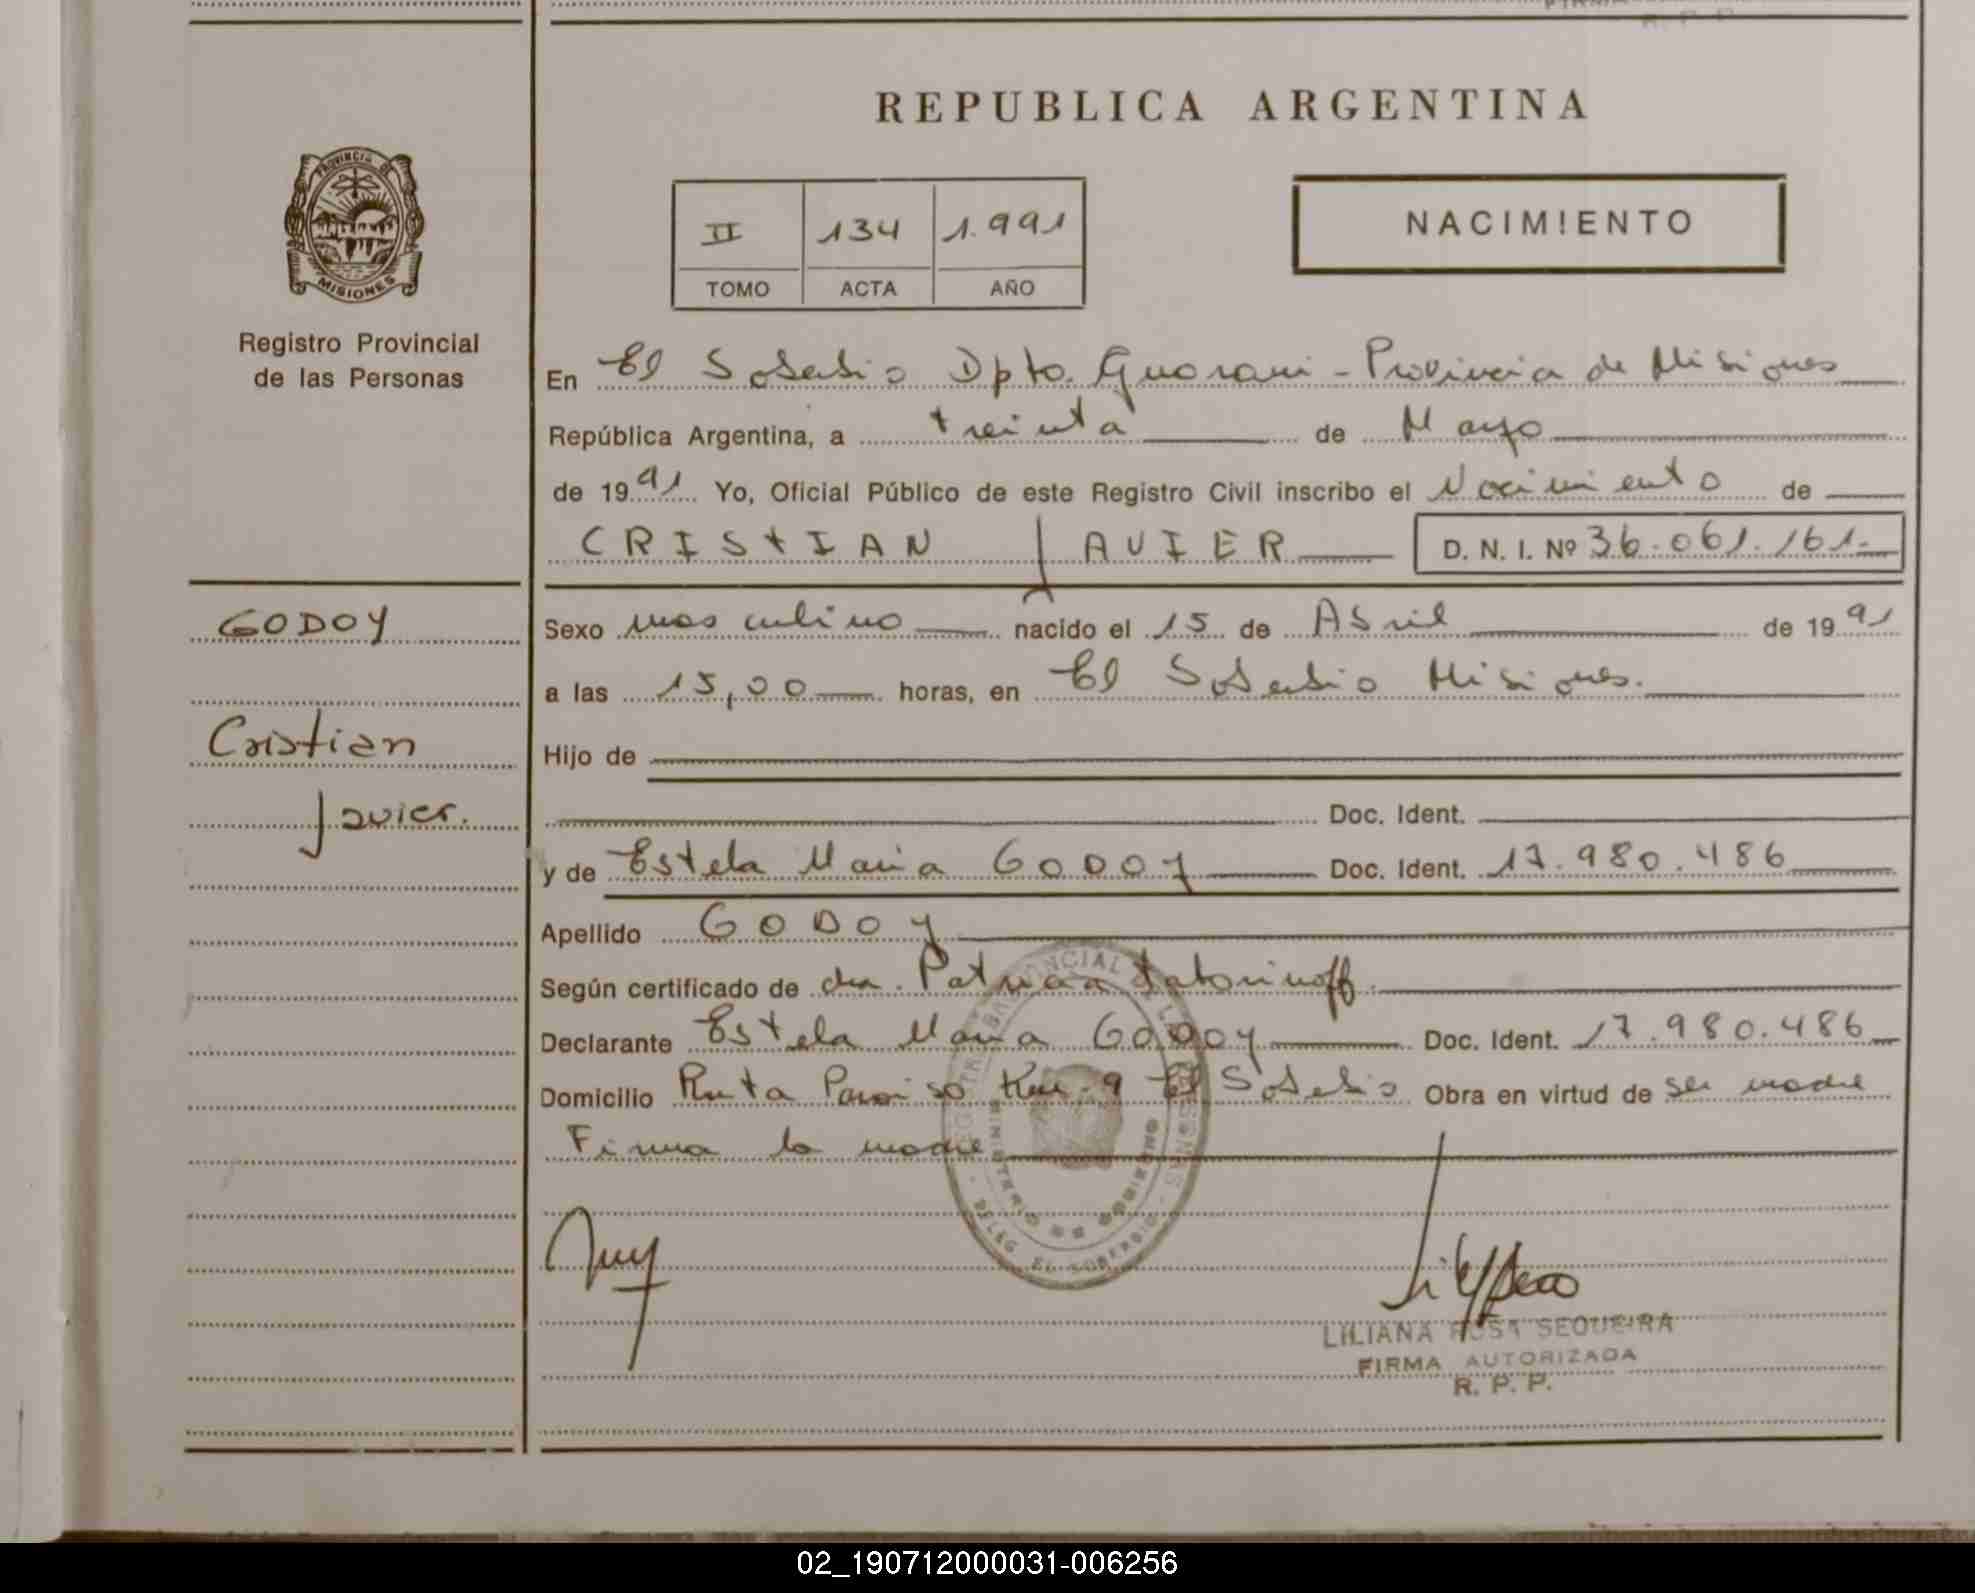 REPUBLICA ARGENTINA
PROVINCIA DE
MISIONES
Registro Provincial
de las Personas
II 134 1.991
TOMO ACTA AÑO
NACIMIENTO
En El Soberbio Dpto. Guarani - Provincia de Misiones
República Argentina, a treinta de Mayo
de 1991 Yo, Oficial Público de este Registro Civil inscribo el Nacimiento de
CRISTIAN JAVIER D. N. I. Nº 36.061.161.-
GODOY
Cristian
Javier.
Sexo masculino nacido el 15 de Abril de 1991
a las 15,00 horas, en El Soberbio Misiones.
Hijo de
Doc. Ident.
y de Estela Maria GODOY Doc. Ident. 17.980.486
Apellido GODOY
Según certificado de dra. Patricia
Declarante Estela Maria GODOY Doc. Ident. 17.980.486
Domicilio Ruta Paraiso Km. 9 El Soberbio Obra en virtud de ser madre
Firma la madre
REGISTRO PROVINCIAL DE LAS PERSONAS
MINISTERIO DE GOBIERNO
DELEG. EL SOBERBIO
LILIANA ROSA SEQUEIRA
FIRMA AUTORIZADA
R. P. P.
02_190712000031-006256